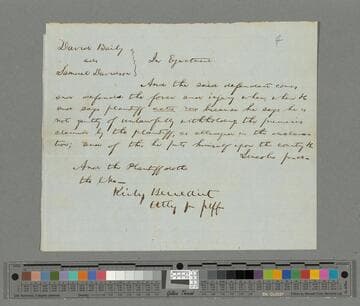 4
David Baily
vs
Samuel Davidson
In Ejectment
And the said defendant comes
and defends the force and injury when, where &c
and says plaintiff actio non because he says he is
not guilty of unlawfully withholding the premises
claimed by the plaintiff, as alledged in the declara-
tion; and of this he puts himself upon the country &c
Lincoln p.d.
And the Plaintiff doth
the like—
Kirby Benedict
Atty for plff